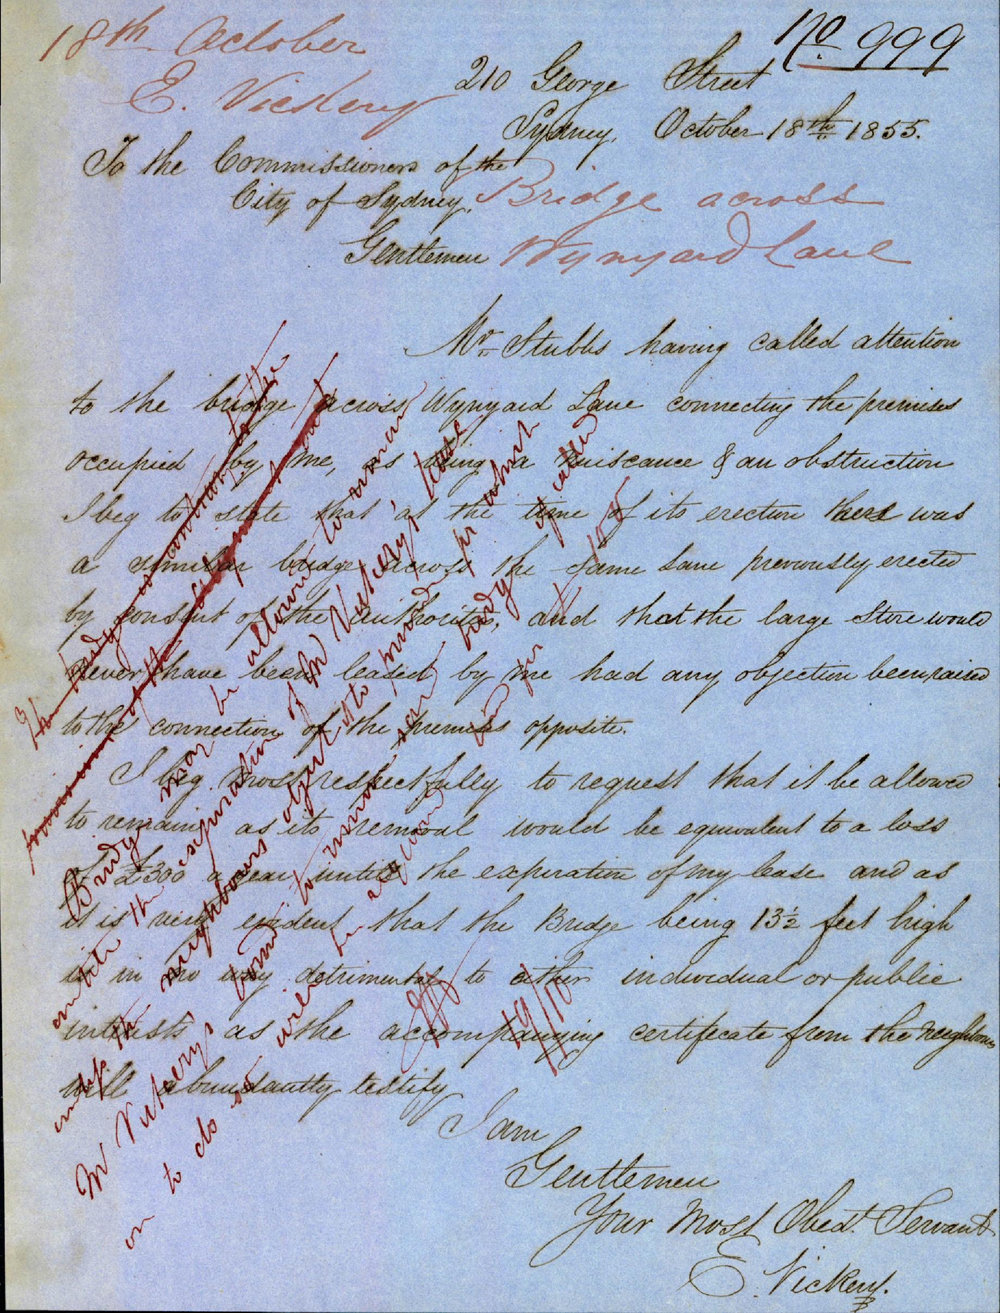 18th October
E. Vickery
No. 999
210 George Street
Sydney, October 18th 1855.
To the Commissioners of the
City of Sydney,
Bridge across
Wynyard Lane
Gentlemen
Mr. Stubbs having called attention
to the bridge across Wynyard Lane connecting the premises
occupied by me, as being a nuiscance & an obstruction
I beg to state that at the time of its erection there was
a similar bridge across the same Lane previously erected
by consent of the authorites, and that the large Store would
never have been leased by me had any objection been raised
to the connection of the premises opposite.
I beg most respectfully to request that it be allowed
to remain, as its removal would be equivalent to a loss
of £300 a year until the expiration of my lease and as
it is very evident that the Bridge being 13½ feet high
is in no way detrimental to either individual or public
interests as the accompanying certificate from the neighbours
will abundantly testify
I am
Gentlemen
Your Most Obedt. Servant
E. Vickery.
The bridge is contrary to the
provisions of the
Bridge may be allowed to remain
until the expiration of Mr Vickery's lease
neighbours object to
Mr Vickery's to remove bridge if called
on to do so will be required
19/10